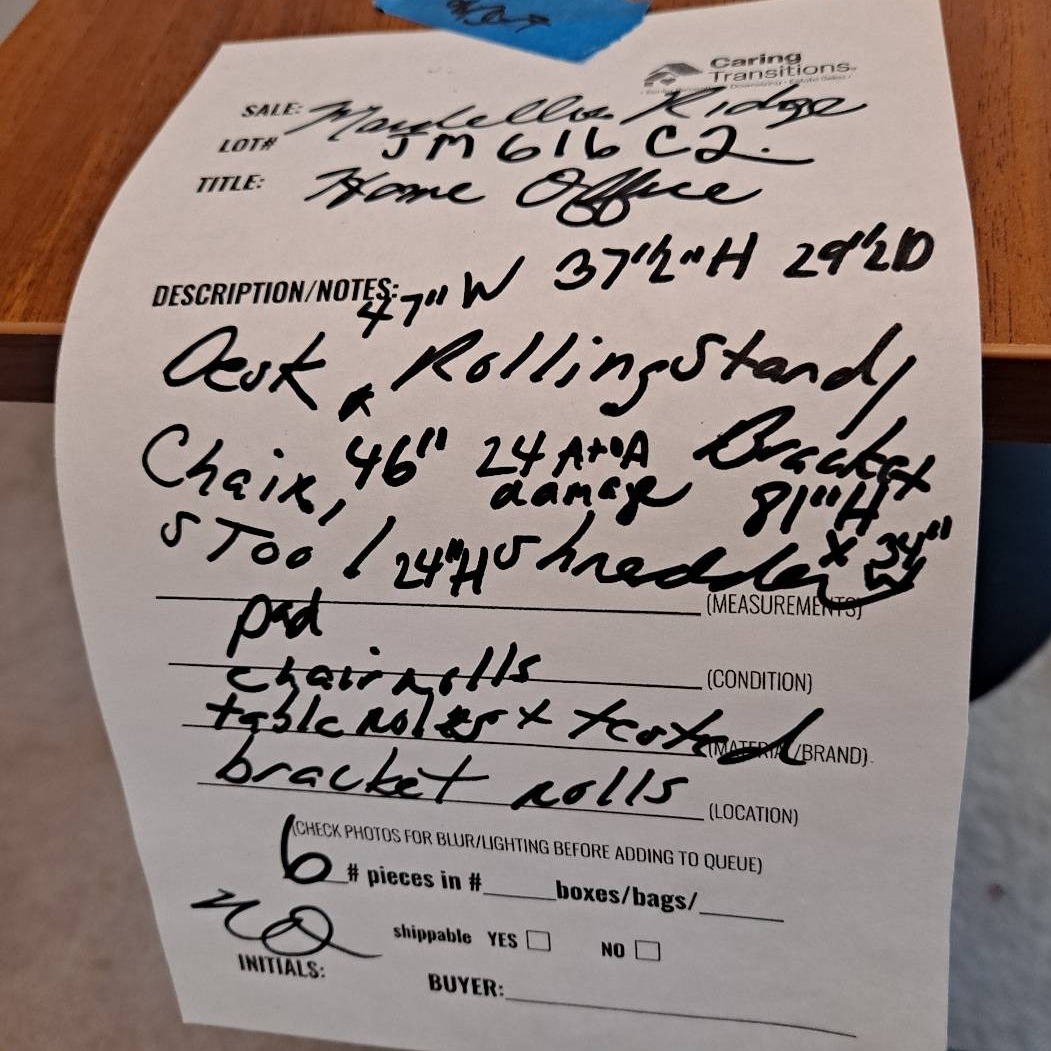 Caring
Transitions
SALE: Ridge
LOT# JM 616 C2.
TITLE: Home Office
DESCRIPTION/NOTES: 47" W 37 1/2" H 29 1/2 D
Desk, Rolling Stand,
Chair, 46" 24 Bracket
damage 81" H
STool 24"H Shredder x 34" W
(MEASUREMENTS)
pad
chair rolls (CONDITION)
table rolls + tested (MATERIAL/BRAND)
bracket rolls (LOCATION)
(CHECK PHOTOS FOR BLUR/LIGHTING BEFORE ADDING TO QUEUE)
6 # pieces in #____ boxes/bags/____
shippable YES ☐ NO ☐
INITIALS:
BUYER: